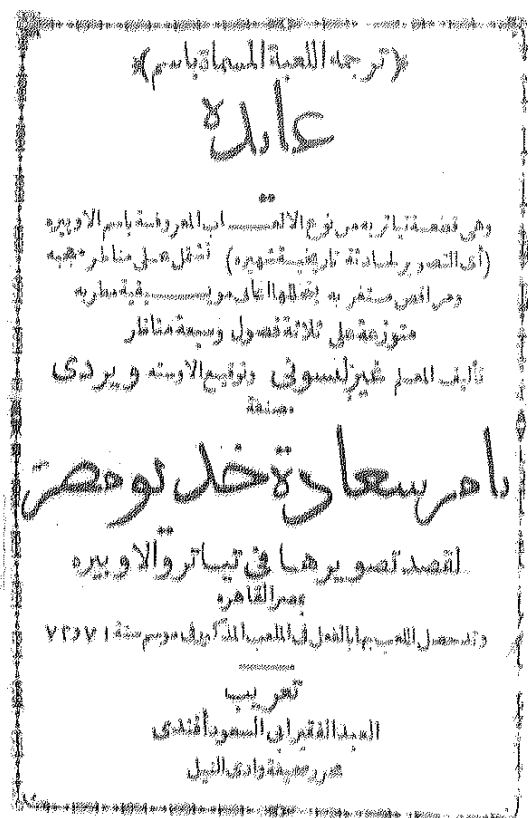 (ترجمه اللعبة المسماة باسم)
عايدة
وهى قصصة تياتريه من نوع الالعـــاب المعروفـة باسم الاوبيره
(أى التصوير لحادثة تاريخيـة شهيره) تشتمل عـلى مناظر عجيبه
ومراقص مستغربه يتخللها اغانى موسـيقية مطربه
متوزعة على ثلاثة فصول وسبعة مناظر
تأليف المعلم غيزلنسونى وتوقيع الاوسته ويردى
مصنفة
بامر سعادة خديو مصر
لقصد تصويرهـا فى تيـاتروالاوبيره
بمصر القاهره
وقد حصل اللعب بها بالفعل فى الملعب المذكور فى موسم سنة ٧١ و٧٢
تعريب
العبد الفقير ابى السعود أفندى
محرر صحيفة وادى النيل